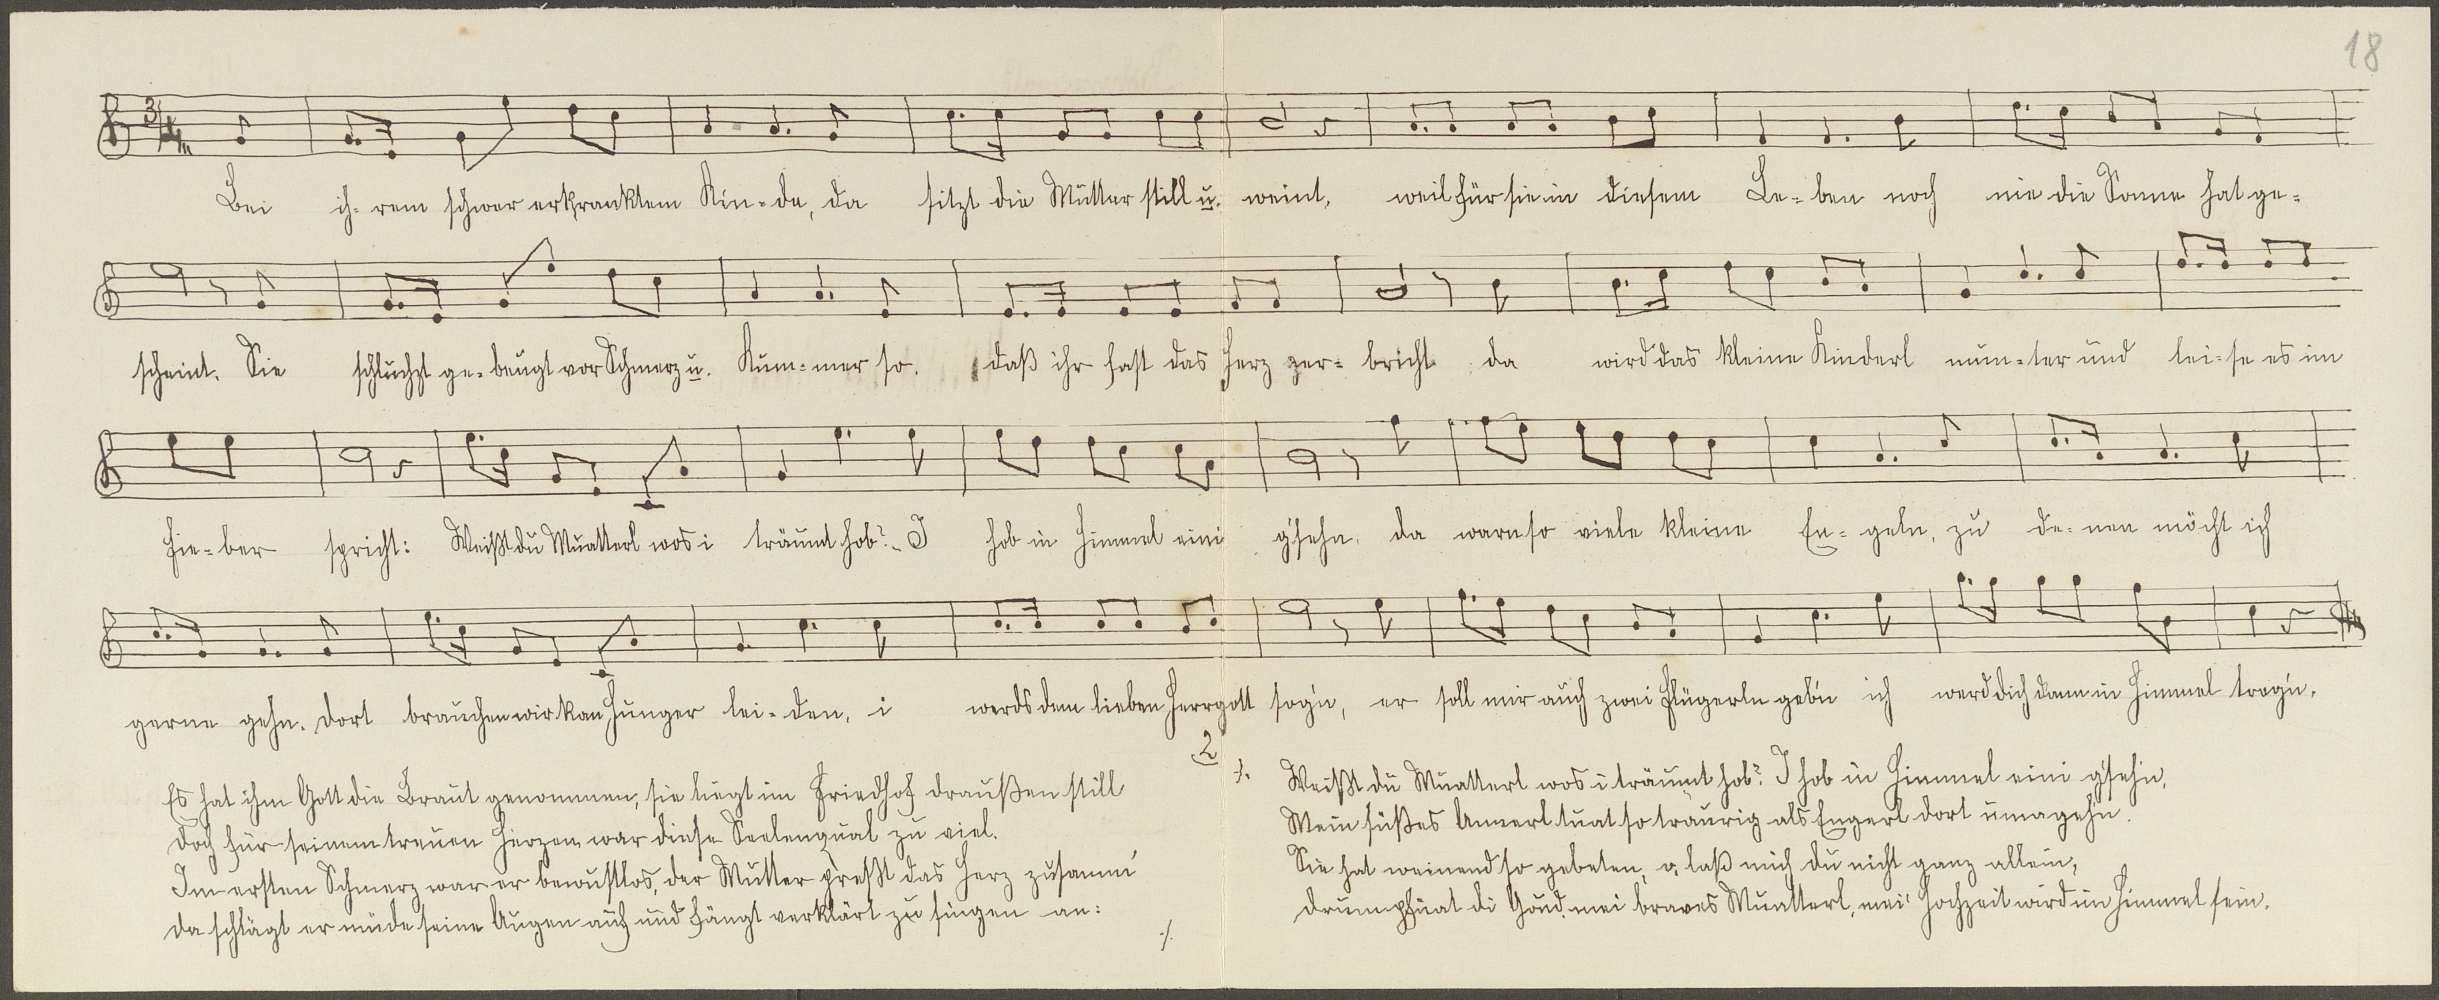 18
3/4
Bei ih- rem schwer erkranktem Kin- de, da sitzt die Mutter still u. weint, weil für sie in diesem Le- ben noch nie die Sonne hat ge-
scheint. Sie schluchzt ge- beugt vor Schmerz u. Kum- mer so. daß ihr fast das Herz zer- bricht da wird das kleine Kinderl mun- ter und lei- se es im
Fie- ber spricht: Weißt du Muatterl wos i träumt hob? I hob in Himmel eini g'sehn, da warn so viele kleine En- geln, zu de- nen möcht ich
gerne gehn. Dort brauchen wir kan Hunger lei- den, i werds dem lieben Herrgott sog'n, er soll mir auch zwei Flügerln geb'n ich werd dich dann in Himmel trog'n.
2
Es hat ihm Gott die Braut genommen, sie liegt im Friedhof draußen still
Doch für seinem treuen Herzen war diese Seelenqual zu viel.
Im ersten Schmerz war er bewustlos, der Mutter preßt das Herz zusamm'
da schlägt er müde seine Augen auf und fängt verklärt zu singen an:
./.
./. Weißt du Muatterl wos i träumt hob? I hob in Himmel eini g'seh'n,
Mein süßes Annerl tuat so traurig als Engerl dort umageh'n.
Sie hat weinend so gebeten, o, laß mich du nicht ganz allein,
drum pfüat di Goud, mei braves Muatterl, mei' Hochzeit wird im Himmel sein.